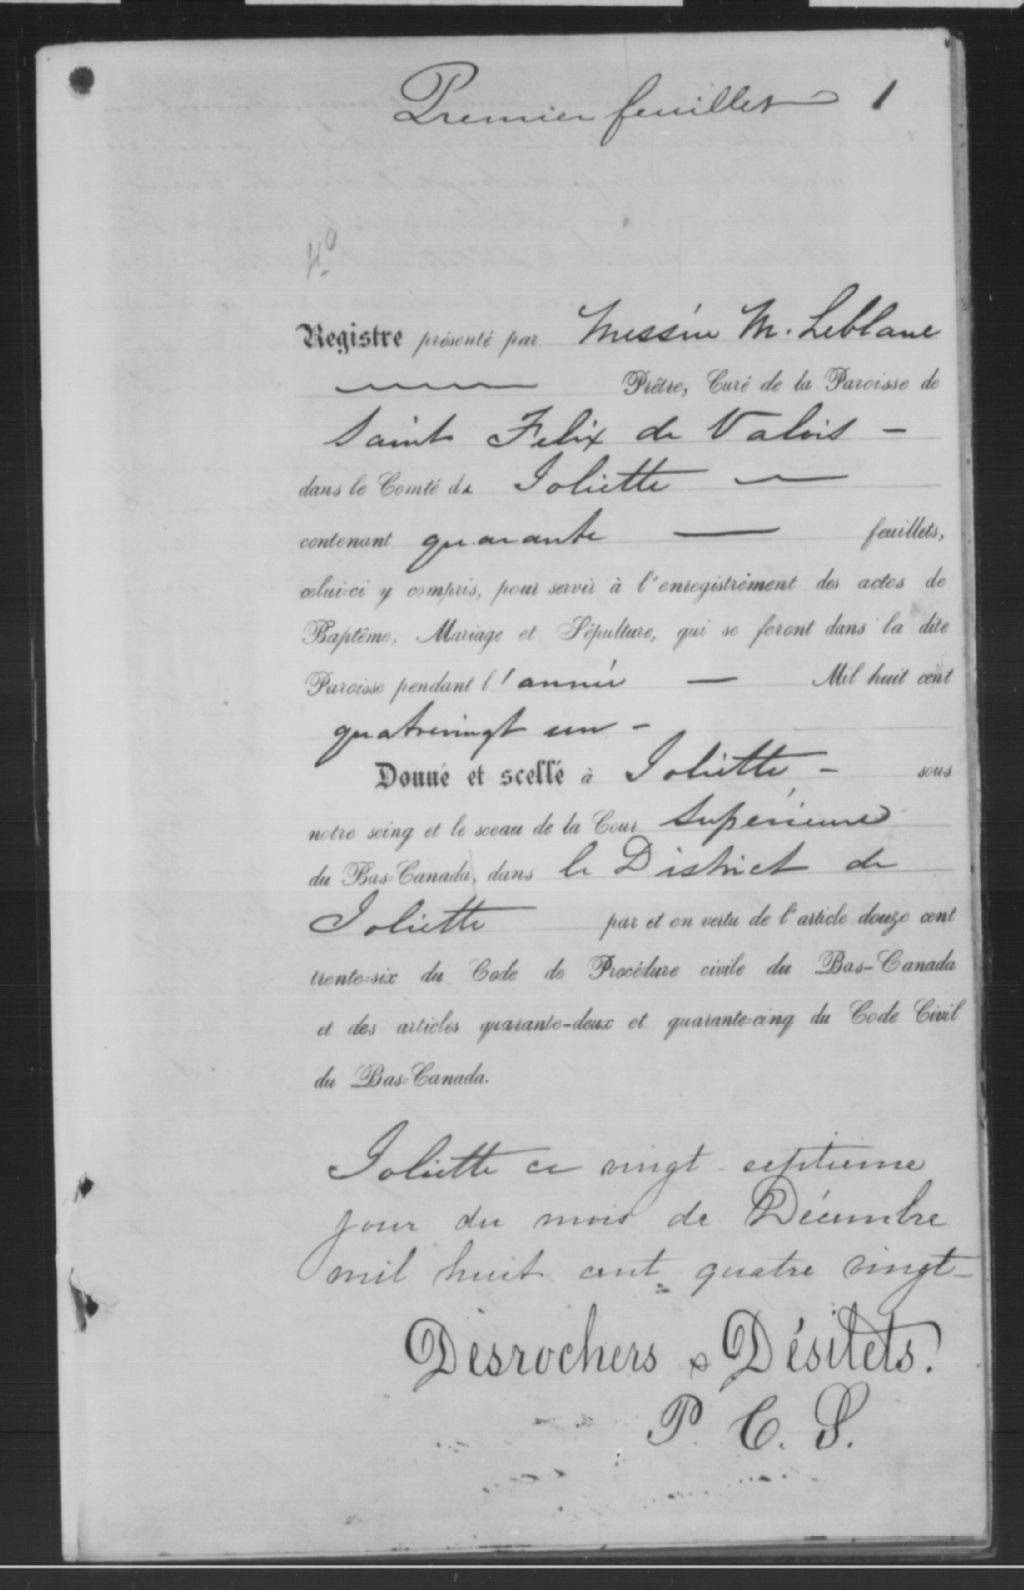 Premier feuillet 1
Registre présenté par Messire M. Leblanc
Prêtre, Curé de la Paroisse de
Saint Felix de Valois -
dans le Comté de Joliette —
contenant quarante — feuillets,
celui-ci y compris, pour servir à l'enregistrement des actes de
Baptême, Mariage et Sépulture, qui se feront dans la dite
Paroisse pendant l'année — Mil huit cent
quatrevingt un -
Donné et scellé à Joliette - sous
notre seing et le sceau de la Cour Supérieure
du Bas-Canada, dans le District de
Joliette par et en vertu de l'article douze cent
trente-six du Code de Procédure civile du Bas-Canada
et des articles quarante-deux et quarante-cinq du Code Civil
du Bas-Canada.
Joliette ce vingt-septieme
jour du mois de Décembre
mil huit cent quatre vingt-
Desrochers & Désilets.
P. C. S.